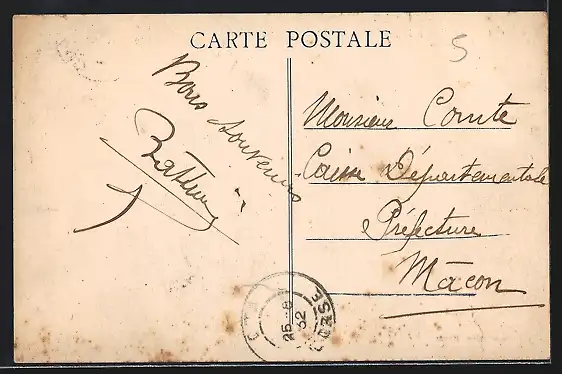 CARTE POSTALE
5
Bons souvenirs
Monsieur Comte
Caisse Départementale
Préfecture
Mâcon
25-8
32
CORSE